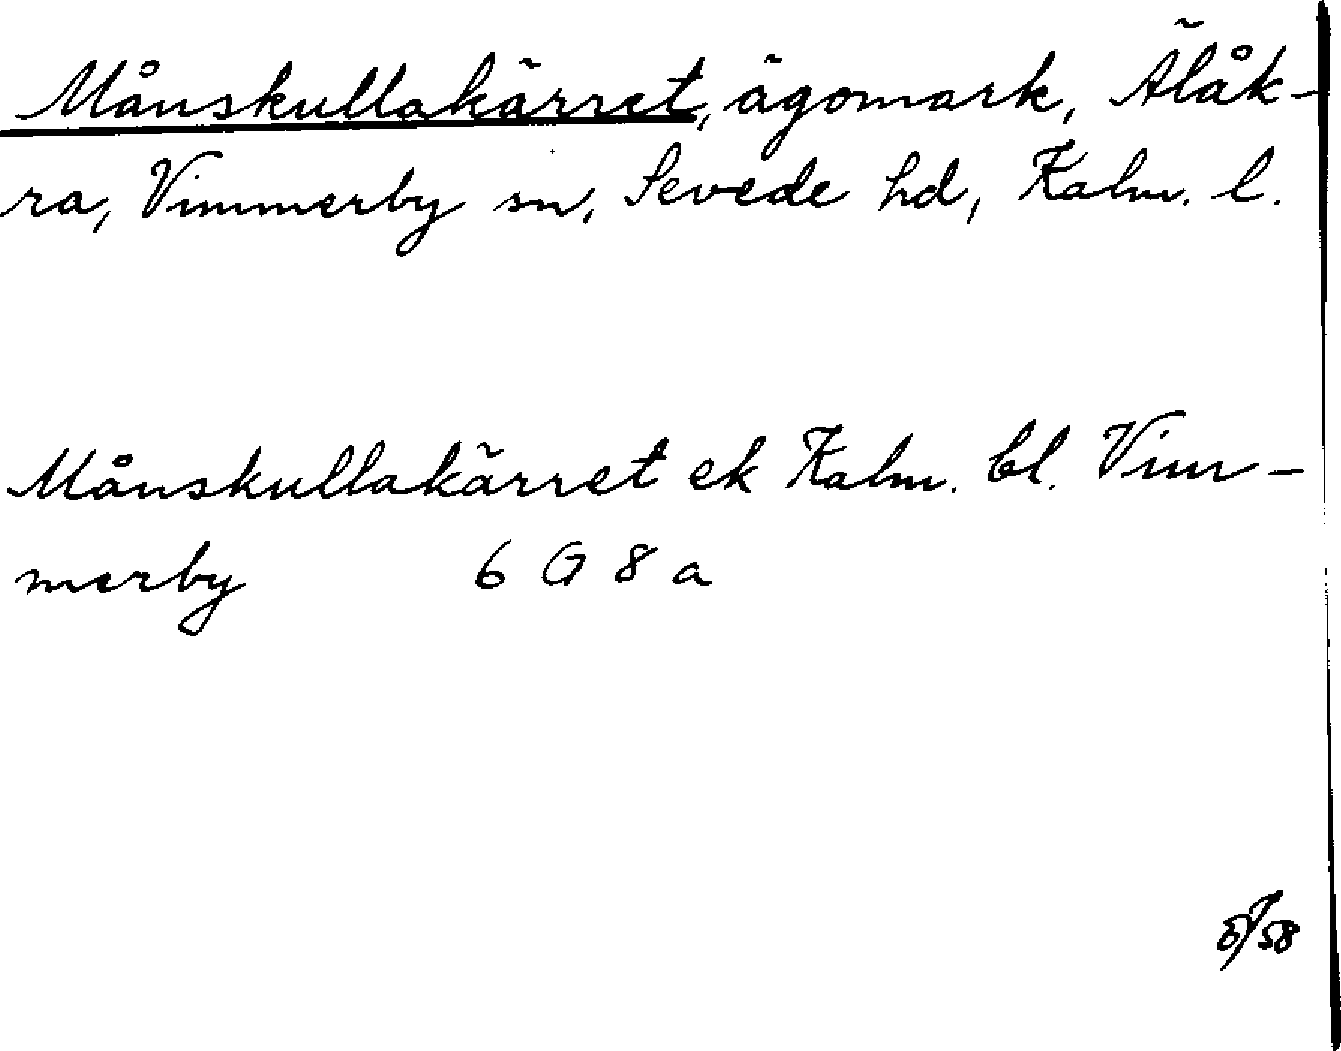 Månskullakärret, ägomark, Älåk-
ra, Vimmerby sn, Sevede hd, Kalm. l.
Månskullakärret ek Kalm. bl. Vim-
merby 6 G 8 a